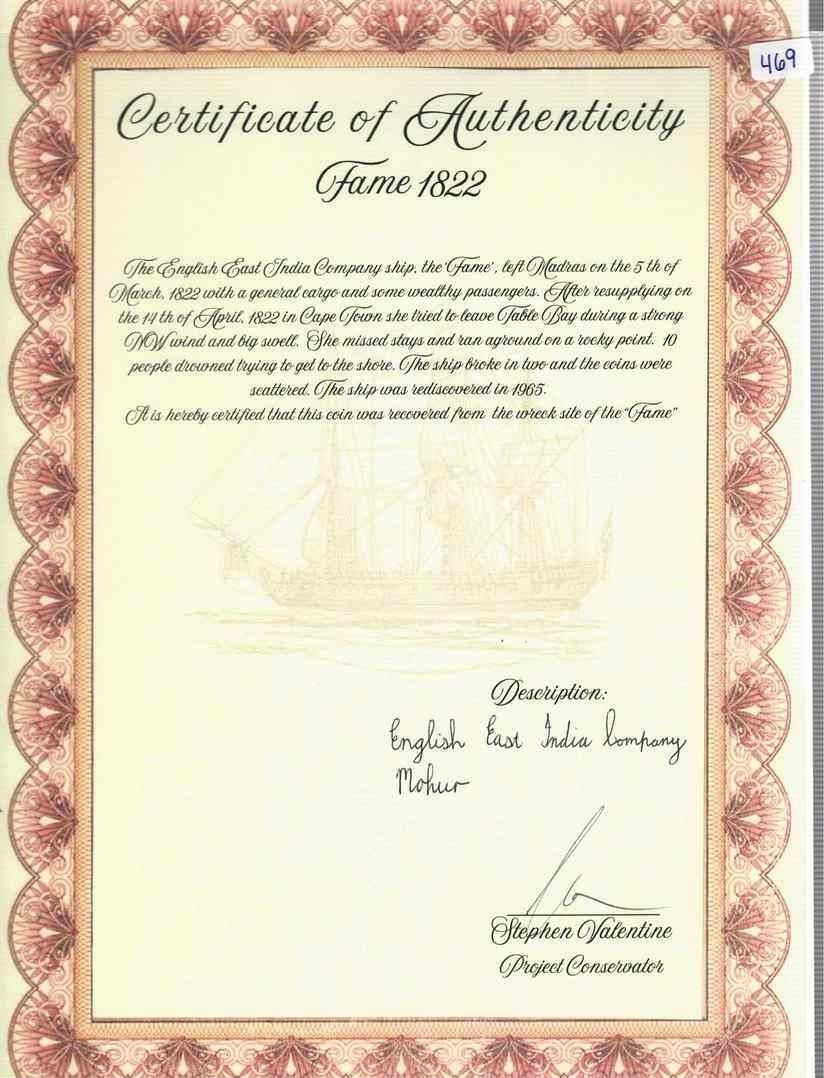 469
Certificate of Authenticity
Fame 1822
The English East India Company ship, the 'Fame', left Madras on the 5 th of
March, 1822 with a general cargo and some wealthy passengers. After resupplying on
the 14 th of April, 1822 in Cape Town she tried to leave Table Bay during a strong
NW wind and big swell. She missed stays and ran aground on a rocky point. 10
people drowned trying to get to the shore. The ship broke in two and the coins were
scattered. The ship was rediscovered in 1965.
It is hereby certified that this coin was recovered from the wreck site of the "Fame"
Description:
English East India Company
Mohur
Stephen Valentine
Project Conservator